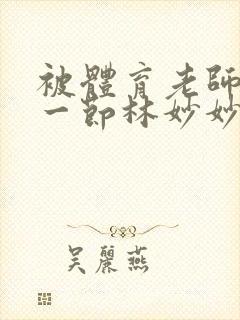 被體育老師
一節林妙妙
吳麗燕